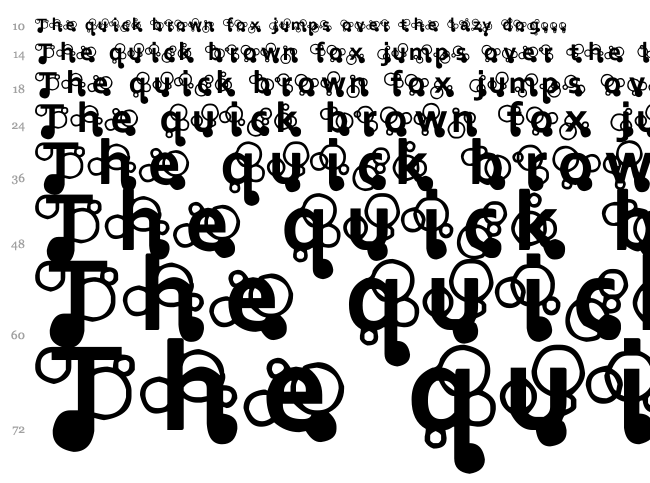 10 The quick brown fox jumps over the lazy dog...
14 The quick brown fox jumps over the
18 The quick brown fox jumps
24 The quick brown fox
36 The quick
48 The quick
60 The
72 The